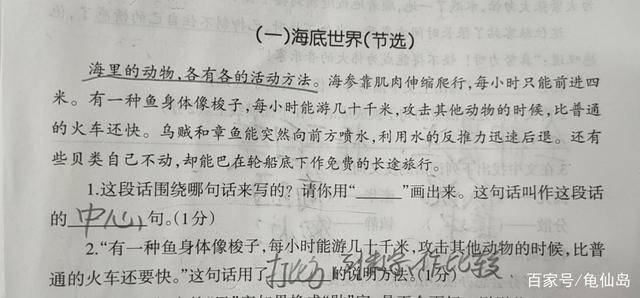 (一)海底世界(节选)
海里的动物,各有各的活动方法。海参靠肌肉伸缩爬行,每小时只能前进四
米。有一种鱼身体像梭子,每小时能游几十千米,攻击其他动物的时候,比普通
的火车还快。乌贼和章鱼能突然向前方喷水,利用水的反推力迅速后退。还有
些贝类自己不动,却能巴在轮船底下作免费的长途旅行。
1.这段话围绕哪句话来写的?请你用“______”画出来。这句话叫作这段话
的 中心 句。(1分)
2.“有一种鱼身体像梭子,每小时能游几十千米,攻击其他动物的时候,比普
通的火车还要快。”这句话用了 打比方 作比较 的说明方法。(1分)
百家号/龟仙岛